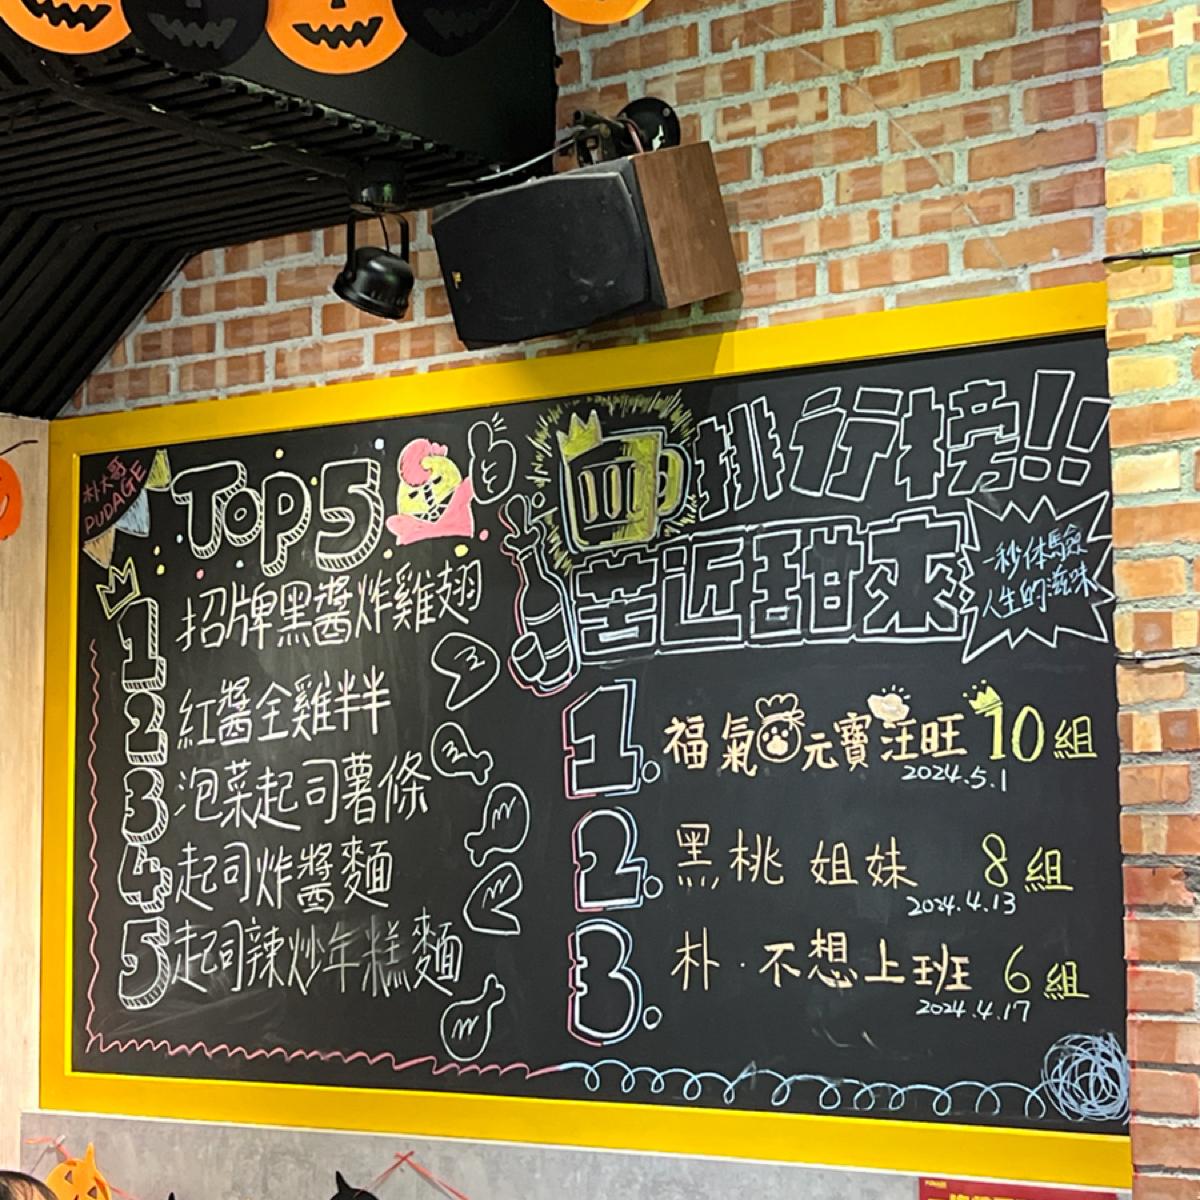 朴大哥
PUDAGE
Top5
1 招牌黑醬炸雞翅
2 紅醬全雞半半
3 泡菜起司薯條
4 起司炸醬麵
5 起司辣炒年糕麵
排行榜!!
苦近甜來
一秒体驗
人生的滋味
1. 福氣元寶汪旺 10組
2024.5.1
2. 黑桃 姐妹 8組
2024.4.13
3. 朴·不想上班 6組
2024.4.17